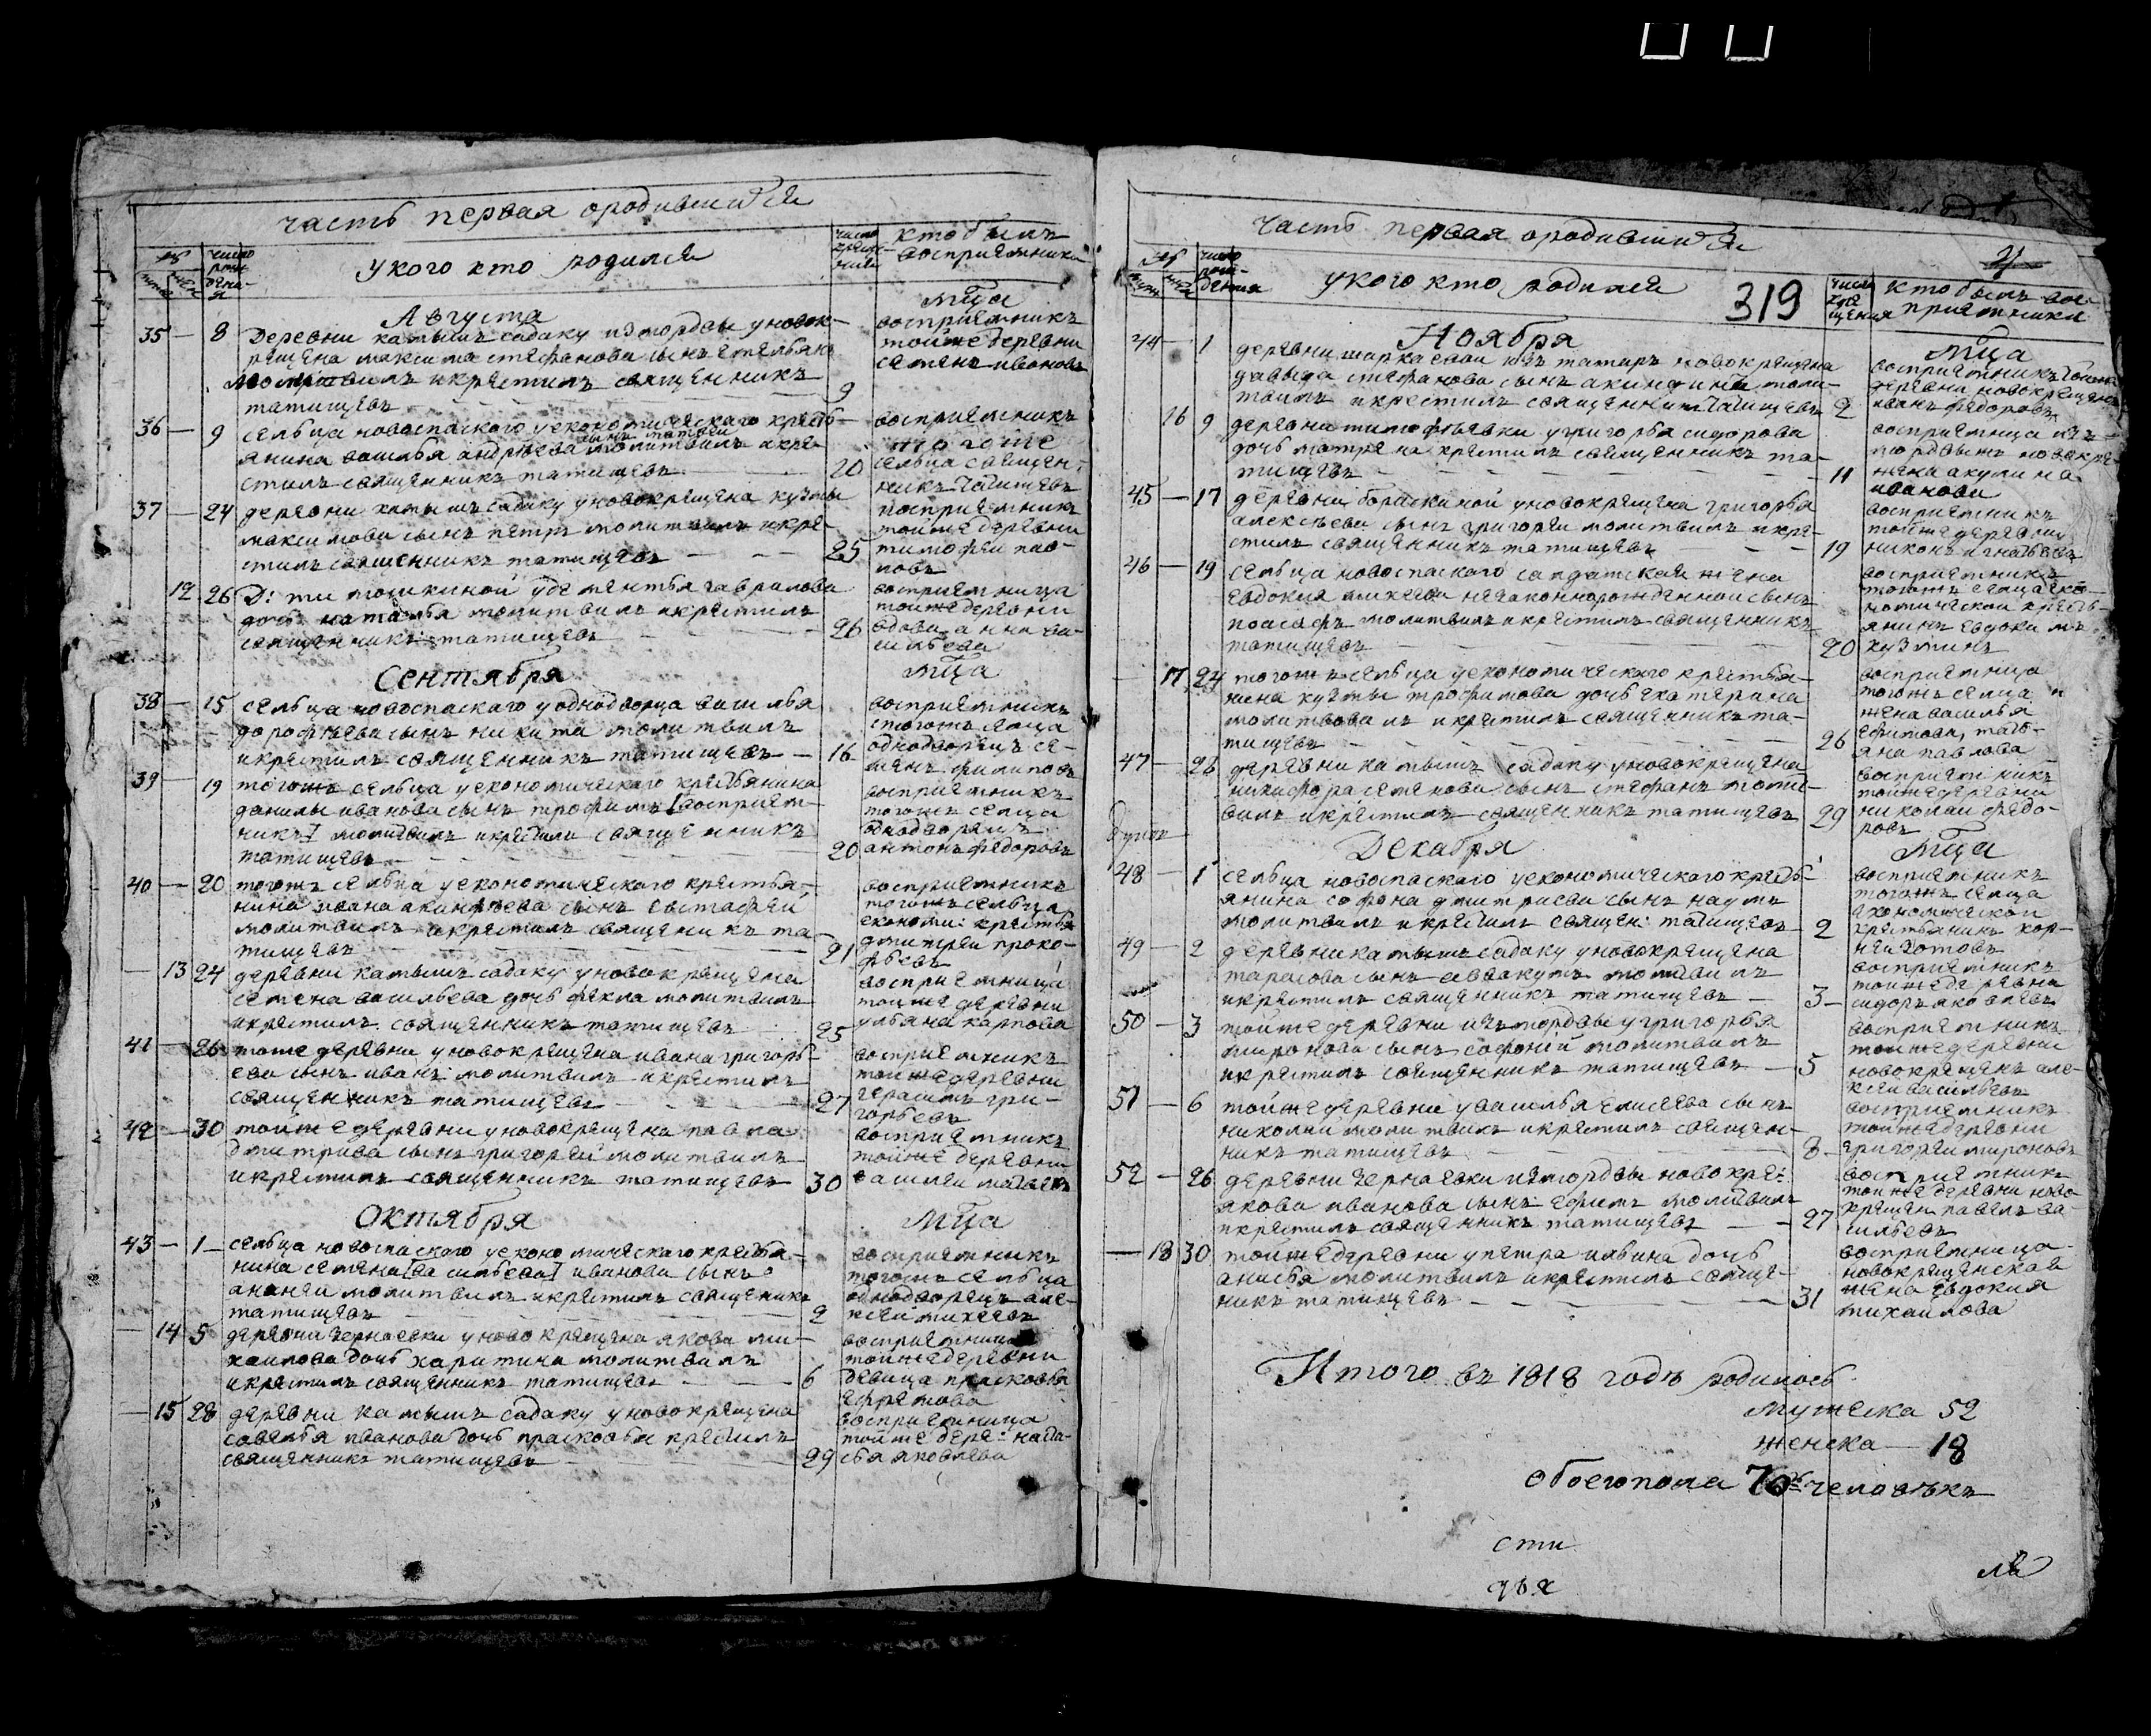 часть первая ородившихся
№
число рождения
у кого кто родился
число крещения
кто былъ восприемники
Августа
мца
35 — 8 Деревни камышъ садаку измордвы уновок-
рещена максима стефанова сынъ емельянъ
молитвилъ икрестилъ священникъ
татищевъ 9
восприемникъ
тойже деревни
семенъ ивановъ
36 — 9 сельца новоспаского уекономического кресть-
янина василья андреева сынъ матвеи молитвилъ икре-
стилъ священникъ татищевъ 20
восприемникъ
тогоже
сельца священ-
никъ татищевъ
37 — 24 деревни камышъ садаку уновокрещена кузмы
максимова сынъ петръ молитвилъ икре-
стилъ священникъ татищевъ 25
восприемникъ
тойже деревни
тимофеи пав-
ловъ
12 26 Д: тимошкиной удементья гаврилова
дочь наталья молитвилъ икрестилъ
священникъ татищевъ 26
восприемница
тойже деревни
вдова анна ва-
сильева
Сентября
мца
38 — 15 сельца новоспаского уоднодворца василья
дорофеева сынъ никита молитвилъ
икрестилъ священникъ татищевъ — 16
восприемникъ
тогожъ селца
однодворецъ се-
менъ филиповъ
39 — 19 тогожъ сельца уекономического крестьянина
данилы иванова сынъ трофимъ [восприем-
никъ] молитвилъ икрестилъ священникъ
татищевъ 20
восприемникъ
тогожъ селца
однодворецъ
антонъ федоровъ
40 — 20 тогожъ сельца уекономического крестья-
нина ивана акинфеева сынъ евстафей
молитвилъ икрестилъ священикъ та-
тищевъ 21
восприемникъ
тогожъ сельца
економи: крестья
дмитреи проко-
фьевъ
— 13 24 деревни камышъ садаку уновокрещена
семена васильева дочь фекла молитвилъ
икрестилъ священникъ татищевъ 25
восприемница
тойже деревни
ульяна карпова
41 — 26 тоже деревни уновокрещена ивана григорь-
ева сынъ иванъ молитвилъ икрестилъ
священникъ татищевъ 27
восприемникъ
тойже деревни
герасимъ гри-
горьевъ
42 — 30 тойже деревни уновокрещена павла
дмитрива сынъ григорей молитвилъ
икрестилъ священникъ татищевъ 30
восприемникъ
тойже деревни
василеи матвеевъ
Октября
Мца
43 — 1 — сельца новоспаского уекономического крестья-
нина семена [васильева] иванова сынъ
ананеи молитвилъ икрестилъ священикъ
татищевъ 2
восприемникъ
тогожъ сельца
однодворецъ але-
ксеи михеевъ
— 14 5 деревни чернаевки уновокрещена якова ми-
хаилова дочь харитина молитвилъ
икрестилъ священникъ татищевъ 6
восприемница
тойже деревни
девица прасковья
ефремова
— 15 28 деревни камышъ садаку уновокрещена
савелья иванова дочь прасковья крестилъ
священникъ татищевъ 29
восприемница
тойже дере: наста-
сья яковлева
Часть первая ородившихся
№
число рождения
у кого кто родился
319
число крещения
кто былъ восприемники
Ноября
Мца
44 — 1 деревни шаркаевай изъ татаръ новокрещена
давыда стефанова сынъ акиндинъ моли-
твилъ икрестилъ священникъ татищевъ 2
восприемникъ тойже
деревни новокрещенъ
иванъ федоровъ
16 9 деревни тимофеевки угригорья сидорова
дочь матрена крестилъ священникъ та-
тищевъ 11
восприемница изъ
мордвынъ новокре-
жена акулина
иванова
45 — 17 деревни бораскиной уновокрещена григорья
алексеева сынъ григореи молитвилъ икре-
стилъ священникъ татищевъ 19
восприемникъ
тойже деревни
никонъ игнатьевъ
46 — 19 сельца новоспаского салдатская жена
евдокия михеева незаконнорожденной сынъ
иоасафъ молитвилъ икрестилъ священникъ
татищевъ 20
восприемникъ
тогожъ селца эко-
номической кресть-
янинъ евдокимъ
кузминъ
— 17 24 тогожъ сельца уекономического крестья-
нина кузмы трофимова дочь екатерина
молитвовалъ икрестилъ священникъ та-
тищевъ 26
восприемница
тогожъ селца
жена василья
ефимова, татъ-
яна павлова
47 — 28 деревни камышъ садаку уновокрещена
никифора семенова сынъ стефанъ моли-
вилъ икрестилъ священникъ татищевъ 29
восприемникъ
тойже деревни
николаи федо-
ровъ
Декабря
Мца
48 — 1 сельца новоспаского уекономического кресть-
янина софона дмитриева сынъ наумъ
молитвилъ икрестилъ священ: татищевъ — 2
восприемникъ
тогожъ селца
економической
крестьянинъ кор-
неи котовъ
49 — 2 деревни камышъ садаку уновокрещена
тарасова сынъ аввакумъ молитвилъ
икрестилъ священникъ татищевъ — 3 —
восприемникъ
тойже деревни
сидоръ яковлевъ
50 — 3 тойже деревни изъ мордвы угригорья
миронова сынъ софоний молитвилъ
икрестилъ священникъ татищевъ — 5
восприемникъ
тойже деревни
новокрещенъ але-
ксеи васильевъ
51 — 6 тойже деревни увасилья елисеева сынъ
николаи молитвилъ икрестилъ священ-
никъ татищевъ 8
восприемникъ
тойже деревни
григореи мироновъ
52 — 26 деревни чернаевки измордвы новокре:
якова иванова сынъ ефимъ молитвилъ
икрестилъ священникъ татищевъ — 27
восприемникъ
тойже деревни ново-
крещенъ павелъ ва-
сильевъ
— 18 30 тойже деревни упетра ильина дочь
анисья молитвилъ икрестилъ священ-
никъ татищевъ 31
восприемница
новокрещенская
жена евдокия
михаилова
Итого въ 1818 годъ родилось
Мужеска 52
женска — 18
обоегопола 70 человѣкъ